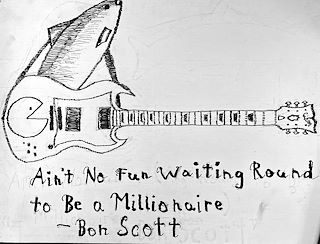 Ain't No Fun Waiting Round
to Be a Millionaire
- Bon Scott